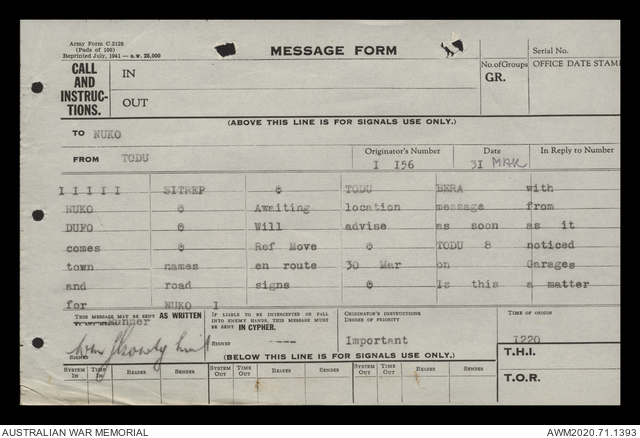 Army Form C.2128
(Pads of 100)
Reprinted July, 1941 — s.w. 25,000
MESSAGE FORM
Serial No.
CALL AND INSTRUCTIONS.
IN
OUT
No. of Groups
GR.
OFFICE DATE STAMP
(ABOVE THIS LINE IS FOR SIGNALS USE ONLY.)
TO NUKO
FROM TODU
Originator's Number
I 156
Date
31 MAR
In Reply to Number
I I I I I SITREP @ TODU BERA with
NUKO @ Awaiting location message from
DUFO @ Will advise as soon as it
comes @ Ref Move @ TODU 8 noticed
town names en route 30 Mar on Garages
and road signs @ Is this a matter
for NUKO 1
THIS MESSAGE MAY BE SENT AS WRITTEN
SIGNED
IF LIABLE TO BE INTERCEPTED OR FALL INTO ENEMY HANDS, THIS MESSAGE MUST BE SENT IN CIPHER.
SIGNED ----
ORIGINATOR'S INSTRUCTIONS
DEGREE OF PRIORITY
Important
TIME OF ORIGIN
1220
(BELOW THIS LINE IS FOR SIGNALS USE ONLY.)
T.H.I.
T.O.R.
SYSTEM IN
TIME IN
READER
SENDER
SYSTEM OUT
TIME OUT
READER
SENDER
SYSTEM OUT
TIME OUT
READER
SENDER
AUSTRALIAN WAR MEMORIAL
AWM2020.71.1393